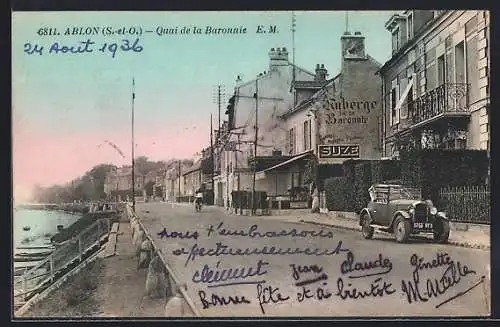 6811. ABLON (S.-et-O.) — Quai de la Baronnie E. M.
24 Août 1936
Auberge
de la
Baronnie
SUZE
nous t'embrassons
affectueusement
clément Jean Claude, Ginette
Bonne fête et à bientôt Marcelle